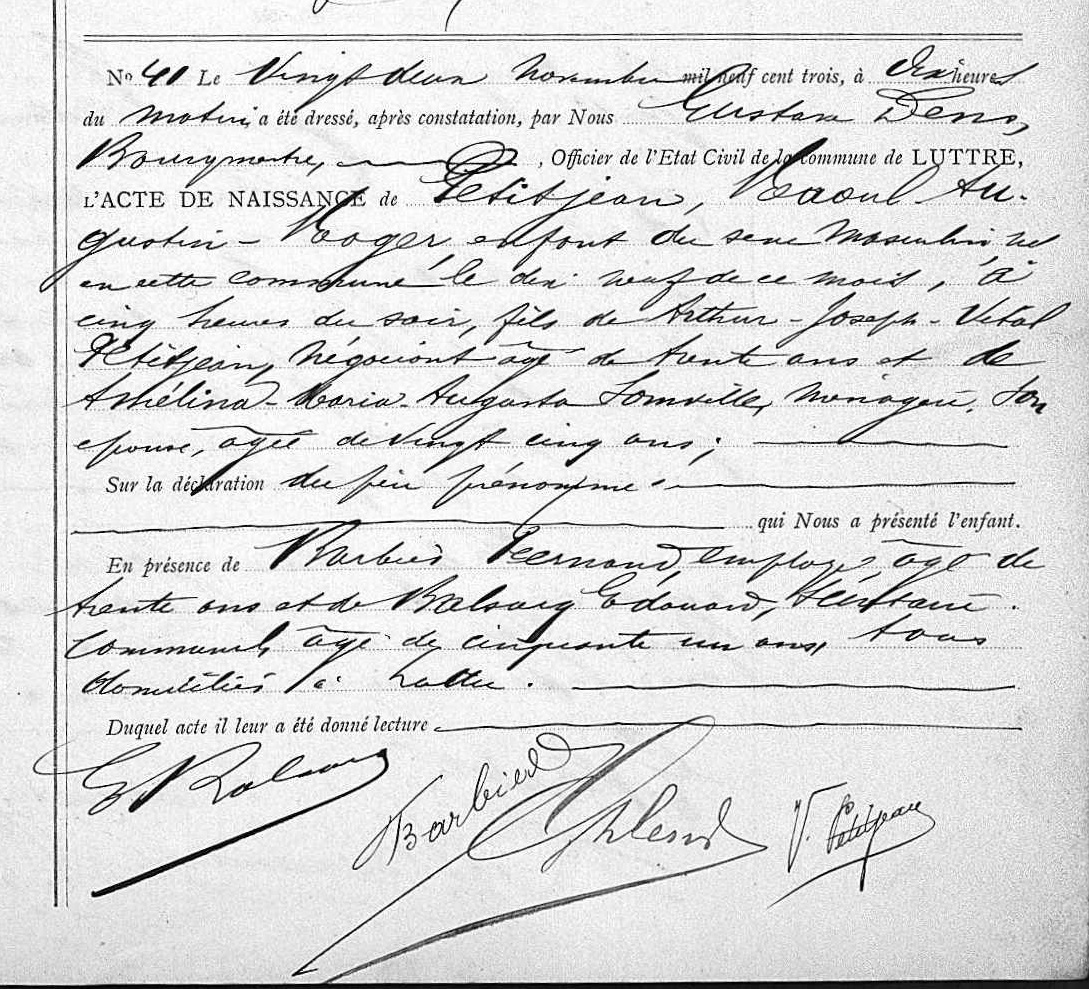 No 41 Le Vingt deux novembre mil neuf cent trois, à dix heures
du matin, a été dressé, après constatation, par Nous Gustave Dens,
Bourgmestre, , Officier de l'Etat Civil de la commune de LUTTRE,
L'ACTE DE NAISSANCE de Petitjean, Raoul Au-
gustin - Roger, enfant du sexe masculin né
en cette commune le dix neuf de ce mois, à
cinq heures du soir, fils de Arthur - Joseph - Vital
Petitjean, négociant âgé de trente ans et de
Maria - Augusta Lomville, ménagère, son
épouse, âgée de vingt cinq ans;
Sur la déclaration du père prénommé
qui Nous a présenté l'enfant.
En présence de Barbier Fernand, employé âgé de
trente ans et de Edouard,
communal, âgé de cinquante un ans, tous
domiciliés à Luttre.
Duquel acte il leur a été donné lecture
Barbier
V. Petitjean